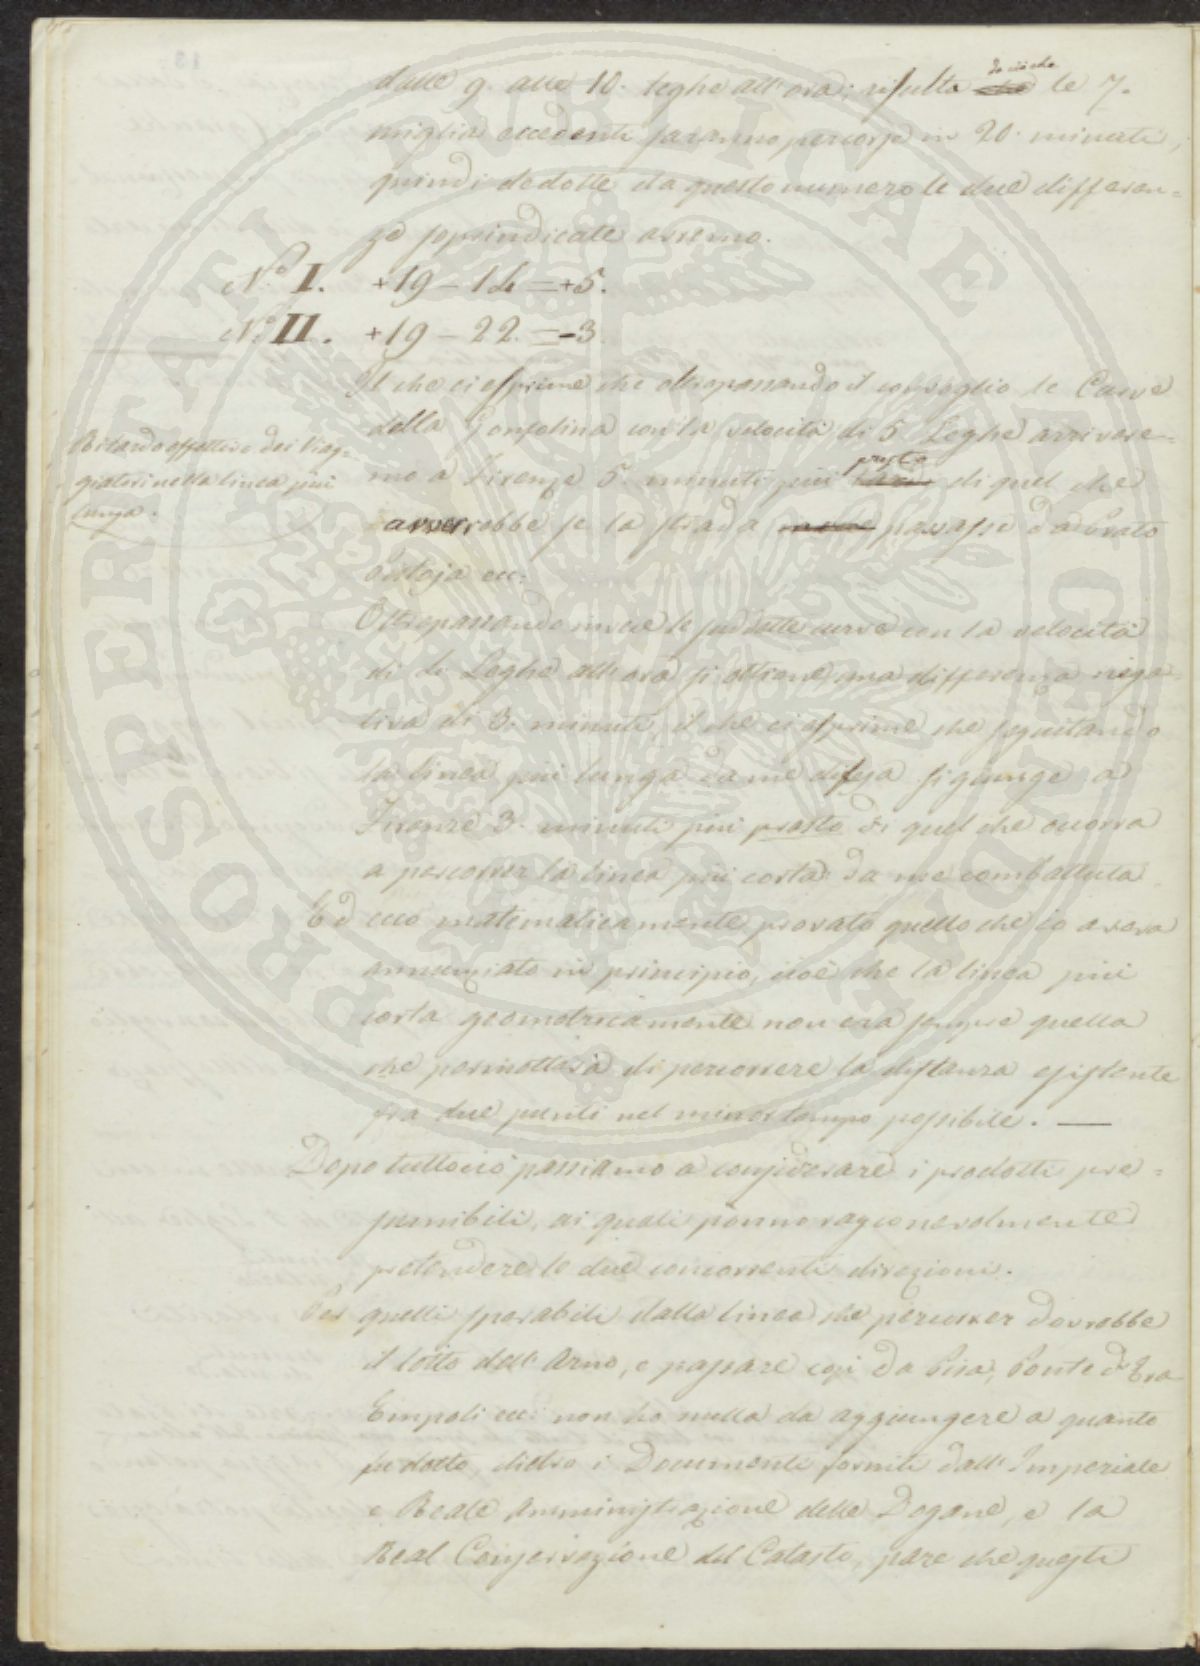 da ciò che
dalle 9. alle 10. leghe all'ora; risulta che le 7.
miglia eccedenti saranno percorse in 20. minuti,
quindi dedotte da questo numero le due differen=
ze sopraindicate avremo.
N.º I. +19 - 14 = +5.
N.º II. +19 - 22. = -3.
Il che ci esprime che oltrepassando il convoglio le Curve
della Gonfolina con la velocità di 5 Leghe arrivere=
Ritardo effettivo dei Viag=
giatori nella linea più
lunga.
presto
mo a Firenze 5. minuti più di quel che
avverrebbe se la strada passasse da Prato
Pistoja ec:
Oltrepassando invece le suddette curve con la velocità
di 4 Leghe all'ora si ottiene una differenza nega=
tiva di 3. minuti, il che ci esprime che seguitando
la linea più lunga da me difesa si giunge a
Firenze 3. minuti più presto di quel che occorra
a percorrer la linea più corta da me combattuta.
Ed ecco matematicamente provato quello che io aveva
annunziato in principio, cioè che la linea più
corta geometricamente non era sempre quella
che permetterà di percorrere la distanza esistente
fra due punti nel minor tempo possibile. —
Dopo tuttociò passiamo a considerare i prodotti pre=
sumibili, ai quali ponno ragionevolmente
pretendere le due concorrenti direzioni.
Per quelli sperabili dalla linea che percorrer dovrebbe
il lotto dell'Arno, e passare così da Pisa, Ponte d'Era
Empoli ec: non ho nulla da aggiungere a quanto
fu detto, dietro i Documenti forniti dall'Imperiale
e Reale Amministrazione delle Dogane, e la
Real Conservazione del Catasto, pare che questi
PROSPERITATI PUBLICAE AUGENDAE